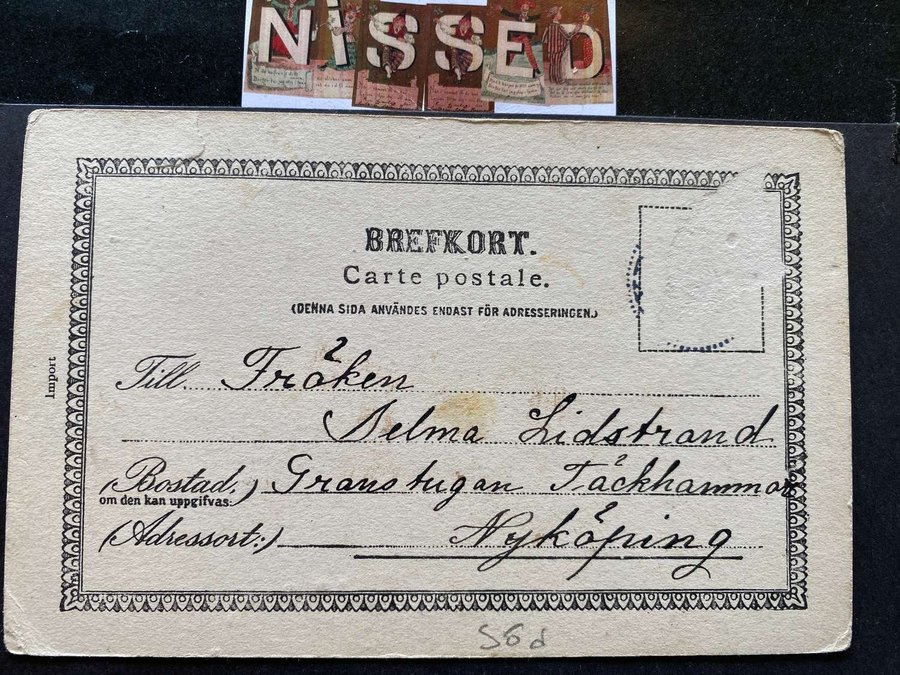 NISSED
BREFKORT.
Carte postale.
(DENNA SIDA ANVÄNDES ENDAST FÖR ADRESSERINGEN.)
Till Fröken
Selma Lidstrand
(Bostad,) Granstugan Täckhammar
om den kan uppgifvas:
(Adressort:) Nyköping
Import